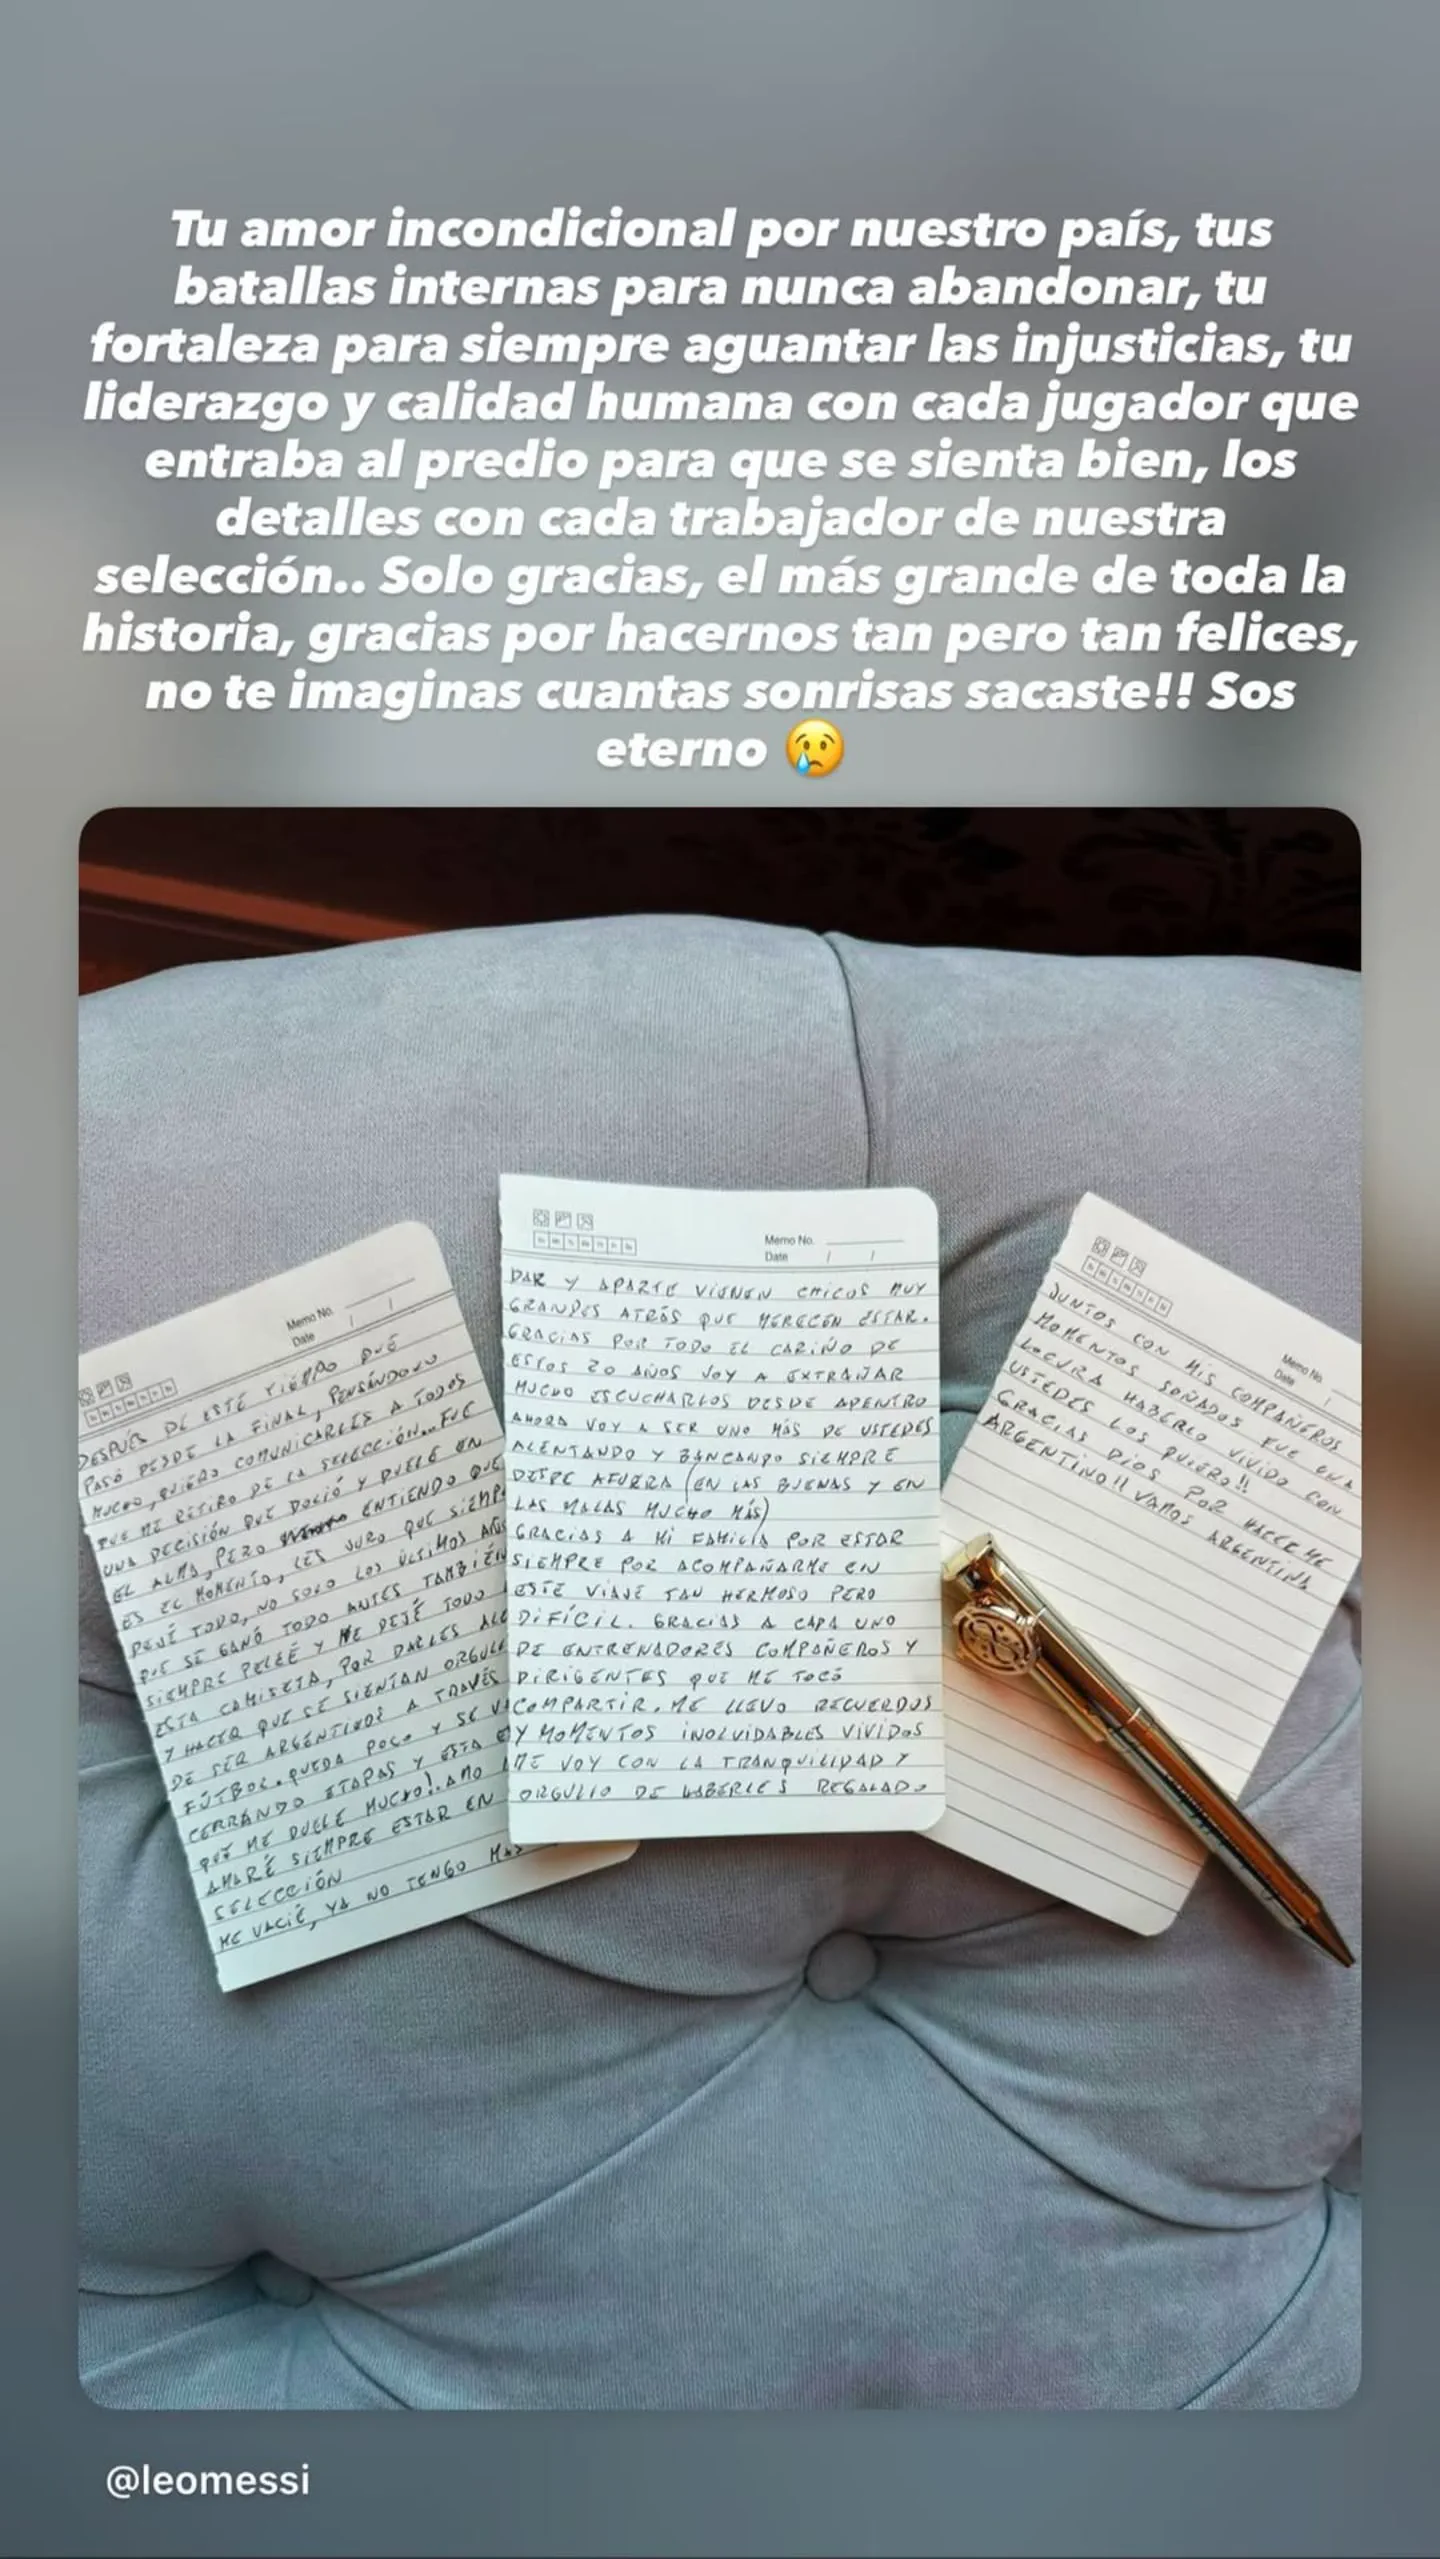 Tu amor incondicional por nuestro país, tus
batallas internas para nunca abandonar, tu
fortaleza para siempre aguantar las injusticias, tu
liderazgo y calidad humana con cada jugador que
entraba al predio para que se sienta bien, los
detalles con cada trabajador de nuestra
selección.. Solo gracias, el más grande de toda la
historia, gracias por hacernos tan pero tan felices,
no te imaginas cuantas sonrisas sacaste!! Sos
eterno 😢
Memo No.
Date / /
DESPUÉS DE ESTE TIEMPO QUE
PASÓ DESDE LA FINAL, PENSÁNDOLO
MUCHO, QUIERO COMUNICARLES A TODOS
QUE ME RETIRO DE LA SELECCIÓN... FUE
UNA DECISIÓN QUE DOLIÓ Y DUELE EN
EL ALMA, PERO ENTIENDO QUE
ES EL MOMENTO, LES JURO QUE SIEMPRE
DEJÉ TODO, NO SOLO LOS ÚLTIMOS AÑOS
QUE SE GANÓ TODO ANTES TAMBIÉN
SIEMPRE PELEÉ Y ME DEJÉ TODO
ESTA CAMISETA, POR DARLES
Y HACER QUE SE SIENTAN
DE SER ARGENTINOS A TRAVÉS
FÚTBOL. QUEDA POCO Y SE
CERRANDO ETAPAS Y ESTA
QUE ME DUELE MUCHO!. AMO
AMARÉ SIEMPRE ESTAR EN
SELECCIÓN
ME VACIÉ, YA NO TENGO MAS
Memo No.
Date / /
DAR Y APARTE VIENEN CHICOS MUY
GRANDES ATRÁS QUE MERECEN ESTAR.
GRACIAS POR TODO EL CARIÑO DE
ESTOS 20 AÑOS VOY A EXTRAÑAR
MUCHO ESCUCHARLOS DESDE ADENTRO
AHORA VOY A SER UNO MÁS DE USTEDES
ALENTANDO Y BANCANDO SIEMPRE
DESDE AFUERA (EN LAS BUENAS Y EN
LAS MALAS MUCHO MÁS)
GRACIAS A MI FAMILIA POR ESTAR
SIEMPRE POR ACOMPAÑARME EN
ESTE VIAJE TAN HERMOSO PERO
DIFÍCIL. GRACIAS A CADA UNO
DE ENTRENADORES COMPAÑEROS Y
DIRIGENTES QUE ME TOCÓ
COMPARTIR. ME LLEVO RECUERDOS
Y MOMENTOS INOLVIDABLES VIVIDOS
ME VOY CON LA TRANQUILIDAD Y
ORGULLO DE HABERLES REGALADO
Memo No.
Date /
JUNTOS CON MIS COMPAÑEROS
MOMENTOS SOÑADOS FUE UNA
LOCURA HABERLO VIVIDO CON
USTEDES LOS QUIERO!!
GRACIAS DIOS POR HACERME
ARGENTINO!! VAMOS ARGENTINA
@leomessi